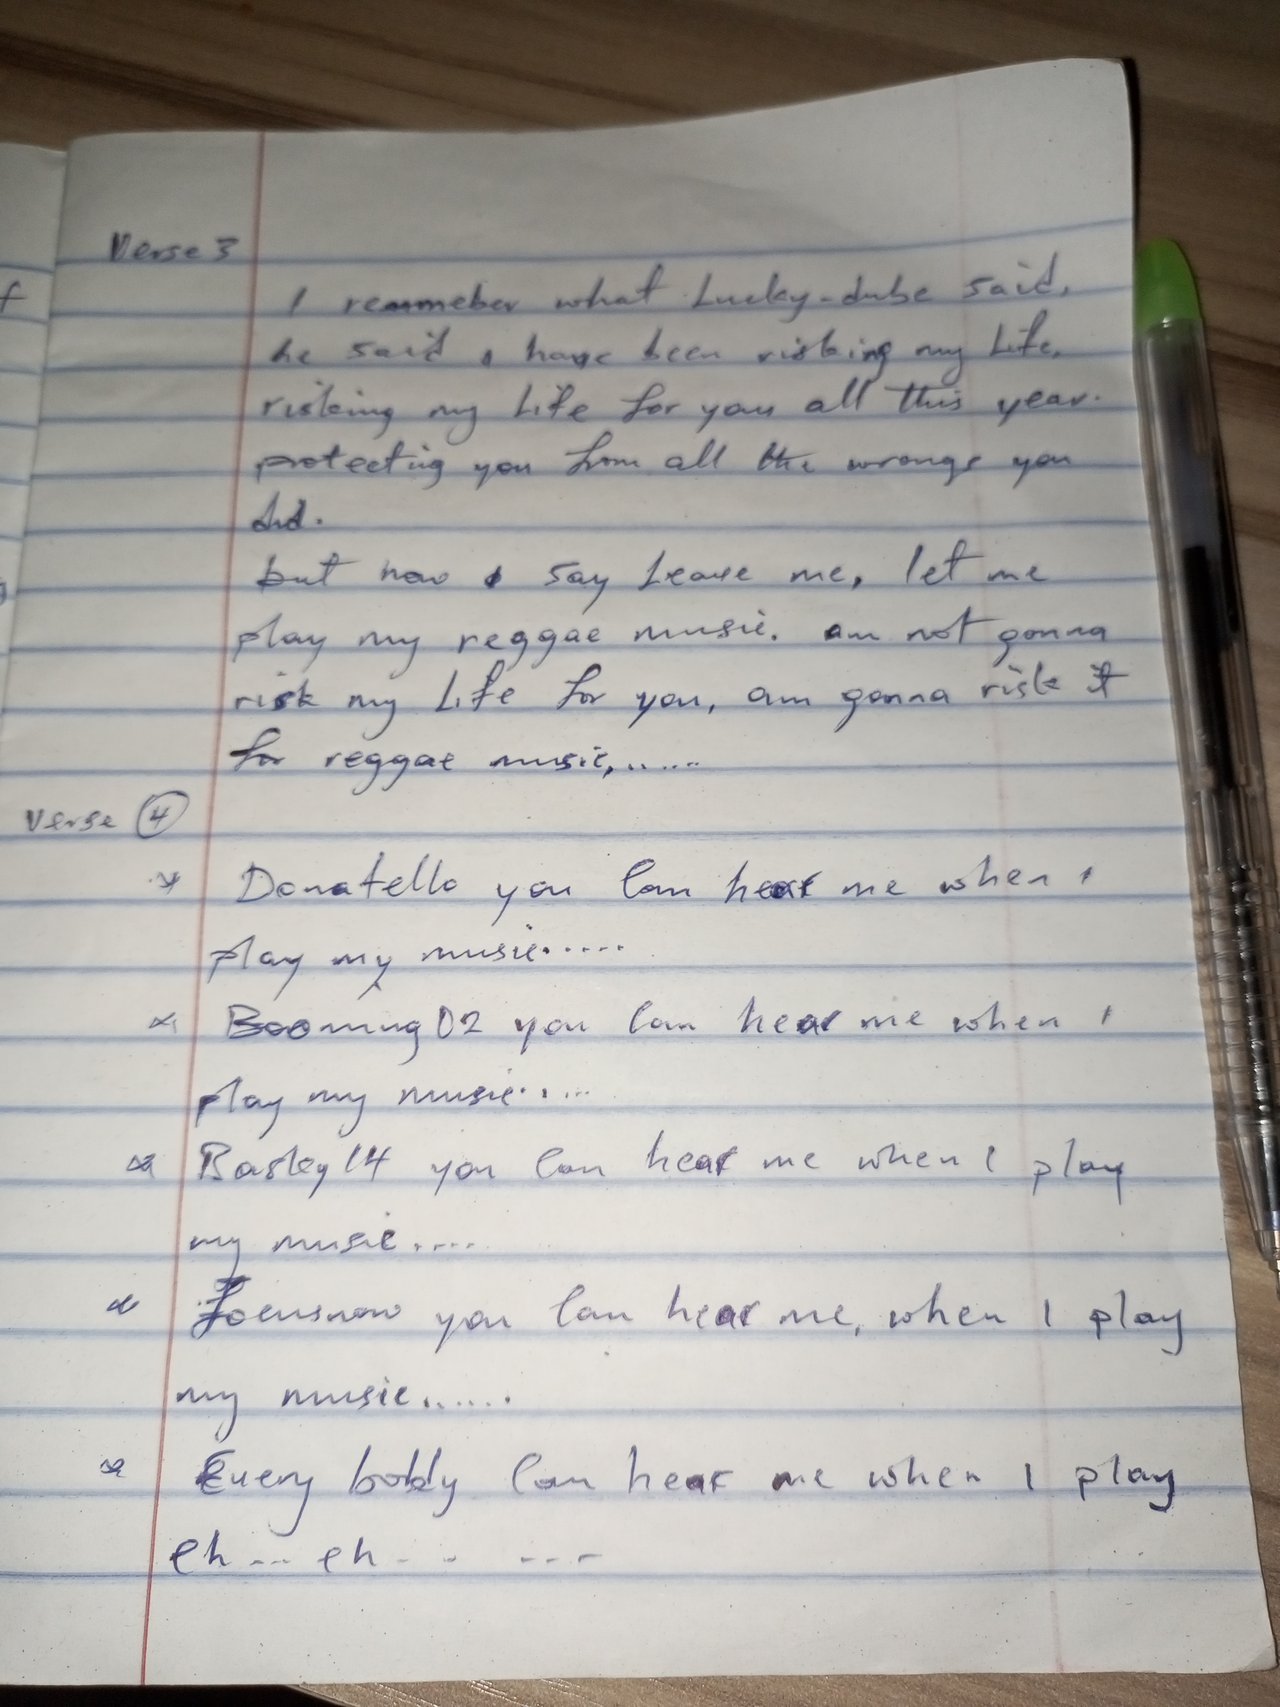 Verse 3
f
I remmeber what Lucky-dube said,
he said I have been risking my Life,
risking my Life for you all this year.
protecting you from all the wrongs you
did.
but now I say Leave me, let me
play my reggae music. am not gonna
risk my Life for you, am gonna risk it
for reggae music,......
Verse 4
* Donatello you Can hear me when I
play my music.....
* Booming02 you Can hear me when I
play my music.....
* Basley14 you Can hear me when I play
my music.....
* Focusnow you Can hear me, when I play
my music......
* Every body Can hear me when I play
eh... eh.. ...